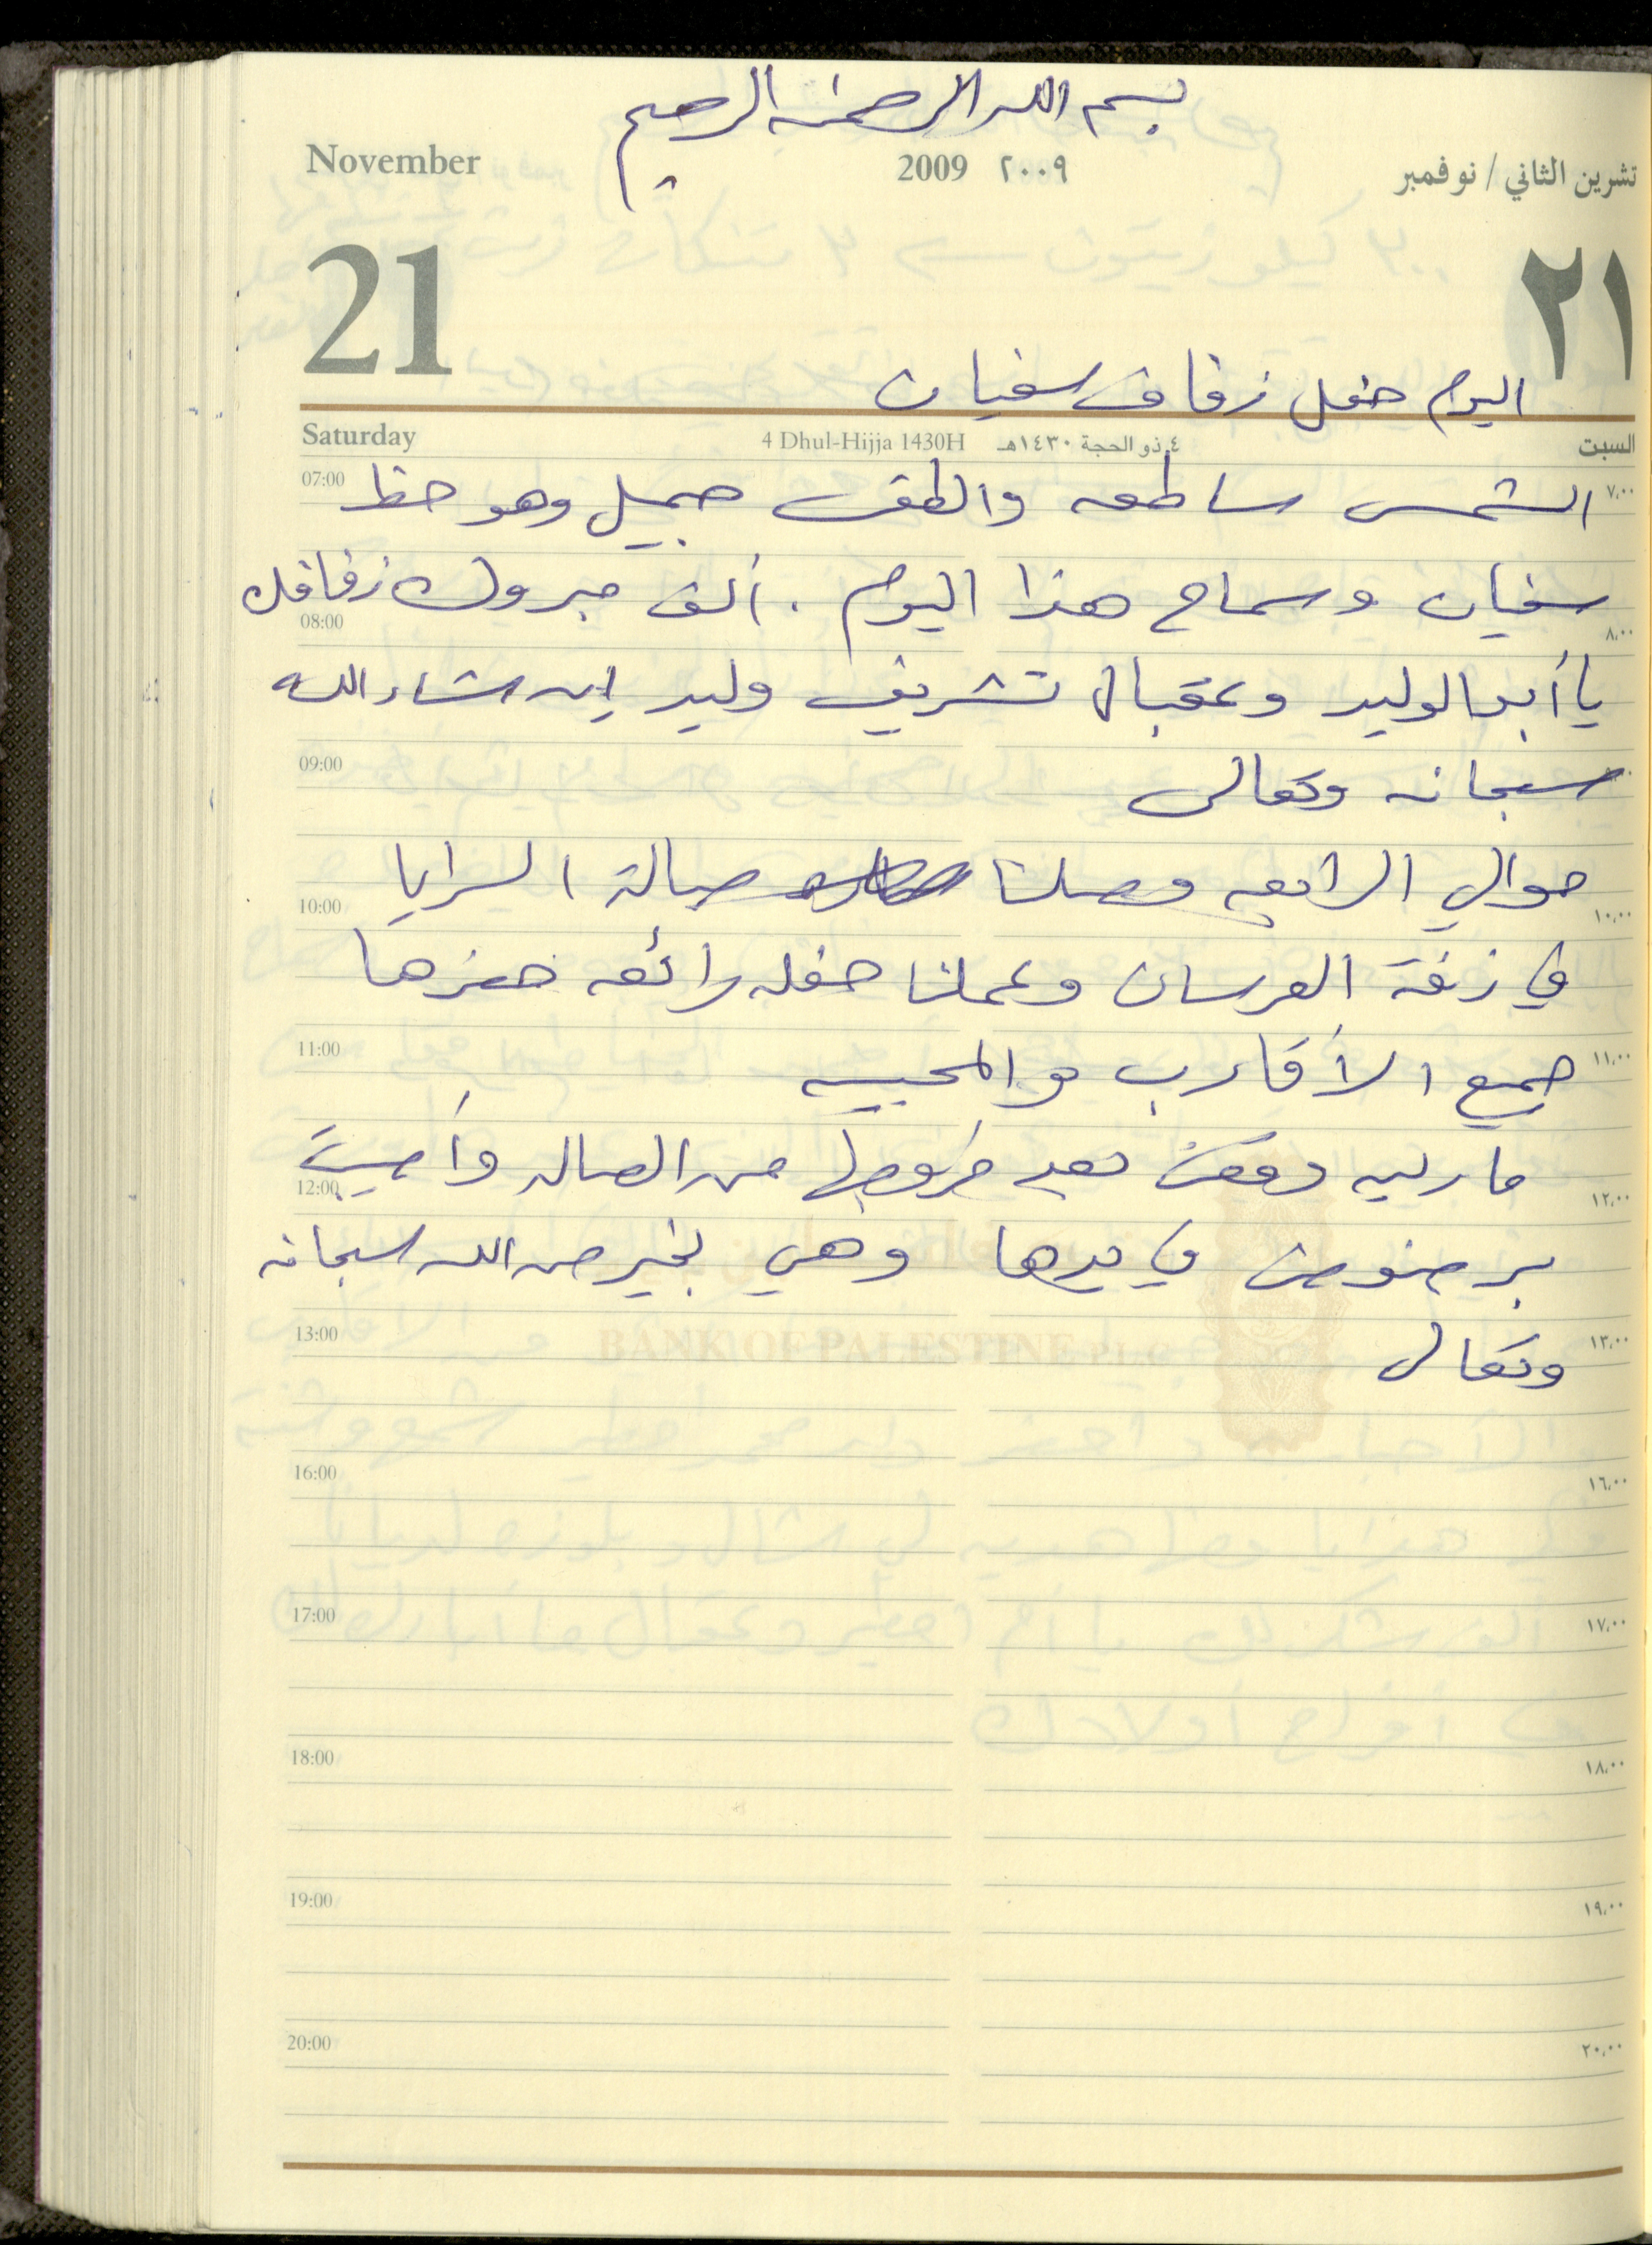 بسم الله الرحمن الرحيم
November 2009 ٢٠٠٩ تشرين الثاني / نوفمبر
21 ٢١
اليوم حفل زفاف سفيان
Saturday 4 Dhul-Hijja 1430H ٤ ذو الحجة ١٤٣٠هـ السبت
07:00 ٧,٠٠
الشمس ساطعه والطقس جميل وهو حظ
سفيان وسماح هذا اليوم . ألف مبروك زفافك
08:00 ٨,٠٠
يا أبو الوليد وعقبال تشريف وليد إن شاء الله
09:00
سبحانه وتعالى
حوالي الرابعه وصلنا صالة السرايا
10:00 ١٠,٠٠
في زفة العرسان وعملنا حفله رائعه حضرها
11:00 ١١,٠٠
جميع الأقارب والمحبين
مارلين وقعت بعد خروجها من الصاله وأصيبت
12:00 ١٢,٠٠
برضوض في يدها وهي بخير من الله سبحانه
13:00 ١٣,٠٠
وتعالى
BANK OF PALESTINE PLC
16:00 ١٦,٠٠
17:00 ١٧,٠٠
18:00 ١٨,٠٠
19:00 ١٩,٠٠
20:00 ٢٠,٠٠